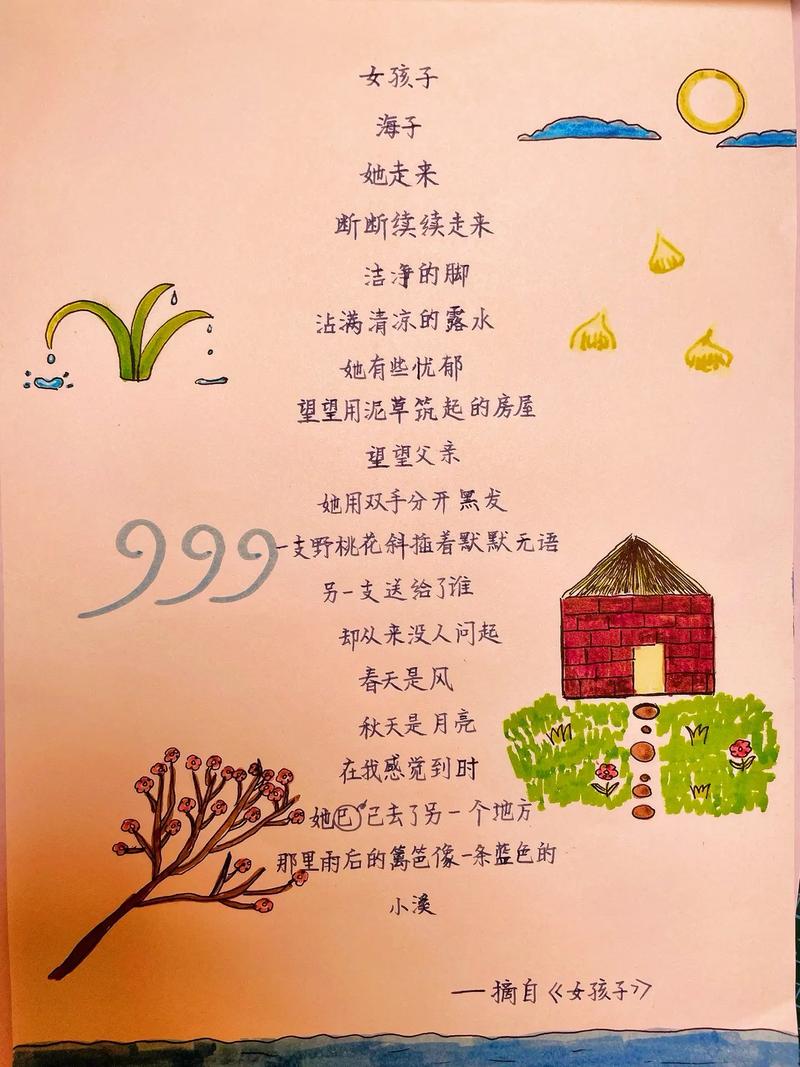 女孩子
海子
她走来
断断续续走来
洁净的脚
沾满清凉的露水
她有些忧郁
望望用泥草筑起的房屋
望望父亲
她用双手分开黑发
一支野桃花斜插着默默无语
另一支送给了谁
却从来没人问起
春天是风
秋天是月亮
在我感觉到时
她已去了另一个地方
那里雨后的篱笆像一条蓝色的
小溪
——摘自《女孩子》